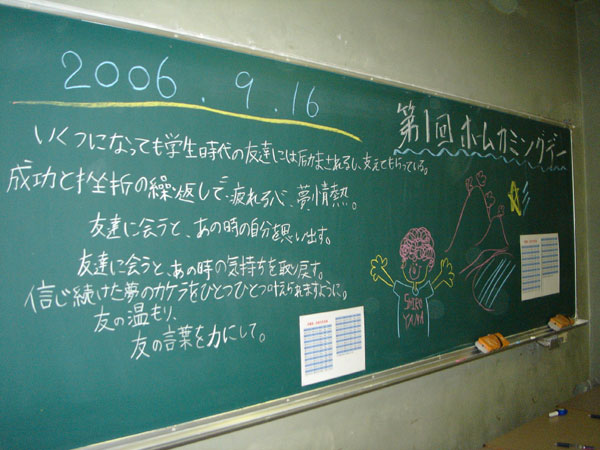 2006.9.16
第1回 ホームカミングデー
いくつになっても学生時代の友達には励まされるし、支えてもらっている。
成功と挫折の繰返しで、疲れる心、夢、情熱。
友達に会うと、あの時の自分を思い出す。
友達に会うと、あの時の気持ちを取り戻す。
信じ続けた夢のカケラをひとつひとつ叶えられますように。
友の温もり、
友の言葉を力にして。
YAMA